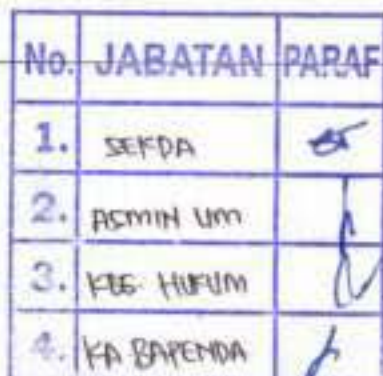 No. JABATAN PARAF
1. SEKDA
2. ASMIN UM
3. KBG. HUKUM
4. KA BAPENDA